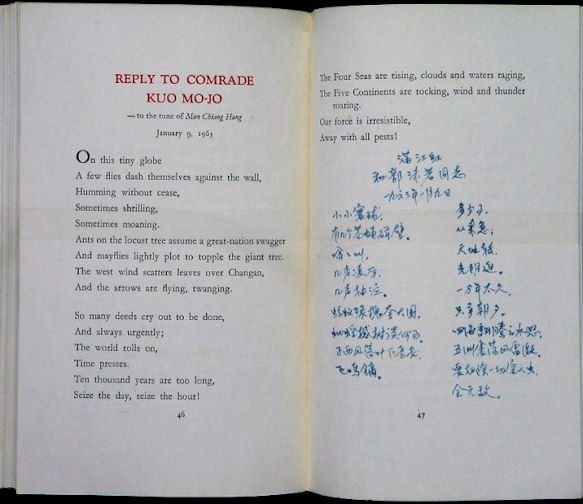 REPLY TO COMRADE
KUO MO-JO
—to the tune of Man Chiang Hung
January 9, 1963
On this tiny globe
A few flies dash themselves against the wall,
Humming without cease,
Sometimes shrilling,
Sometimes moaning.
Ants on the locust tree assume a great-nation swagger
And mayflies lightly plot to topple the giant tree.
The west wind scatters leaves over Changan,
And the arrows are flying, twanging.
So many deeds cry out to be done,
And always urgently;
The world rolls on,
Time presses.
Ten thousand years are too long,
Seize the day, seize the hour!
46
The Four Seas are rising, clouds and waters raging,
The Five Continents are rocking, wind and thunder
roaring.
Our force is irresistible,
Away with all pests!
满江红
和郭沫若同志
一九六三年一月九日
小小寰球,
有几个苍蝇碰壁。
嗡嗡叫,
几声凄厉,
几声抽泣。
蚂蚁缘槐夸大国,
蚍蜉撼树谈何易。
正西风落叶下长安,
飞鸣镝。
多少事,
从来急;
天地转,
光阴迫。
一万年太久,
只争朝夕。
四海翻腾云水怒,
五洲震荡风雷激。
要扫除一切害人虫,
全无敌。
47